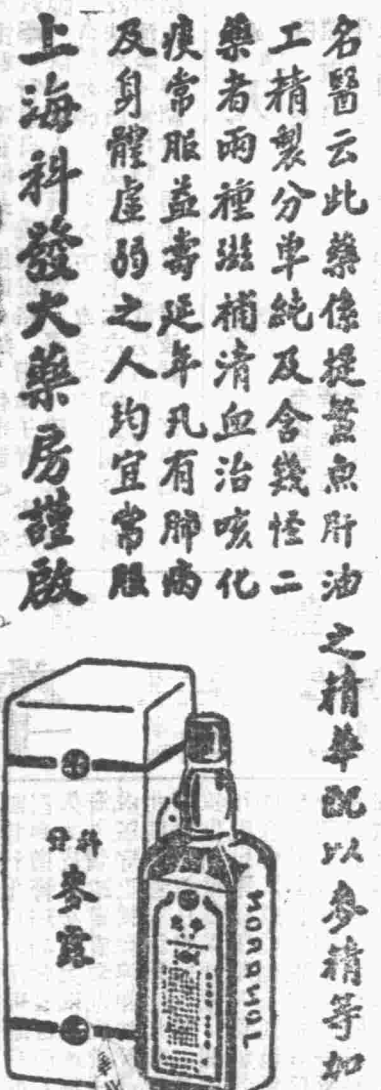 名醫云此藥係提鱉魚肝油之精華配以麥精等加
工精製分單純及含幾怪二
藥者兩種滋補清血治咳化
痰常服益壽延年凡有肺病
及身體虛弱之人均宜常服
上海科發大藥房謹啟
科發
麥露
MORRHOL